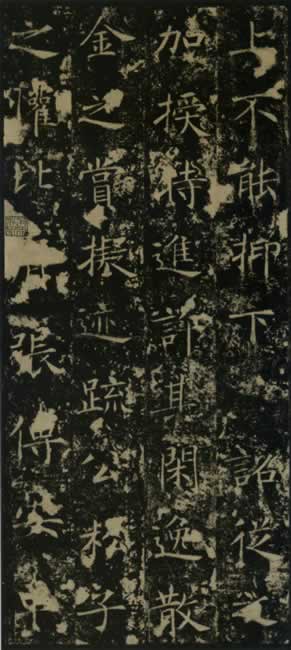 上不能抑下詔從之
加授特進許其閑逸散
金之賞振迹疏公松子
之懽比肩張侯安